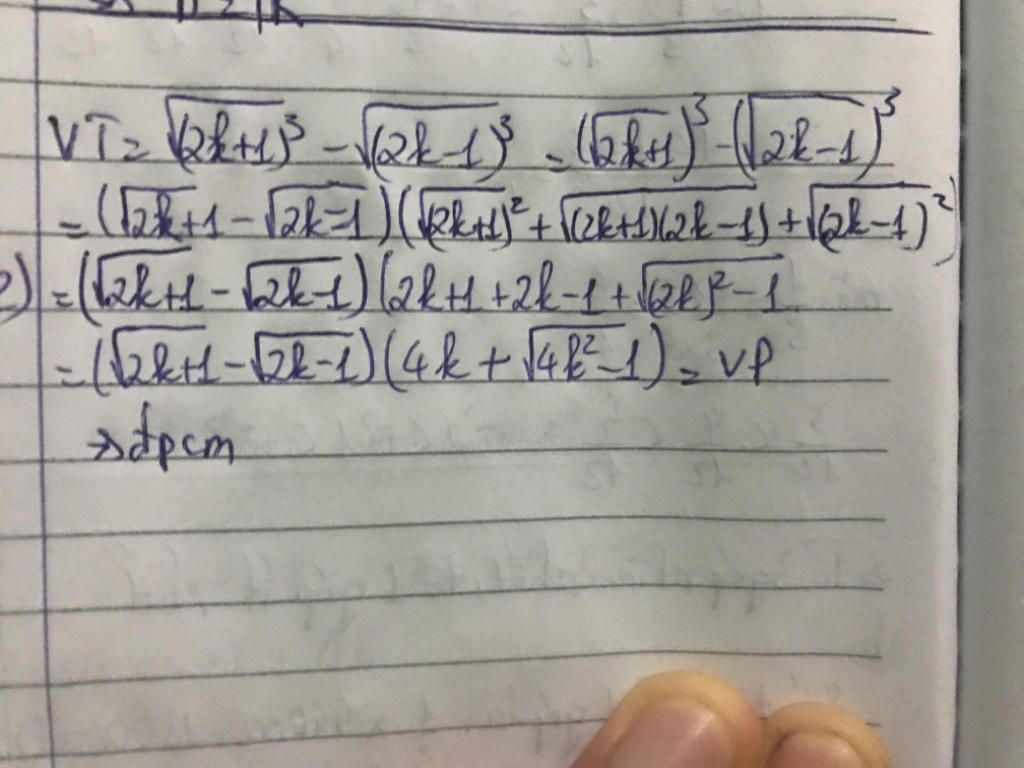 VT = √(2k+1)³ - √(2k-1)³ = (√2k+1)³ - (√2k-1)³
= (√2k+1 - √2k-1)(√(2k+1)² + √(2k+1)(2k-1) + √(2k-1)²)
2) = (√2k+1 - √2k-1)(2k+1+2k-1+√(2k)²-1
= (√2k+1 - √2k-1)(4k + √4k²-1) = VP
→ đpcm